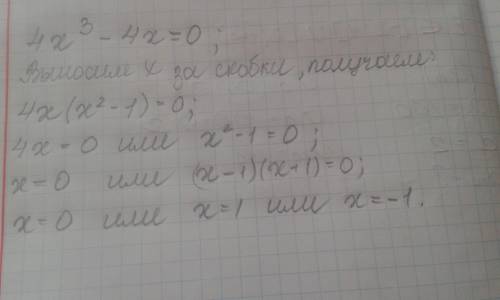 4x³ - 4x = 0;
Выносим x за скобки, получаем:
4x(x² - 1) = 0;
4x = 0 или x² - 1 = 0;
x = 0 или (x - 1)(x + 1) = 0;
x = 0 или x = 1 или x = -1.